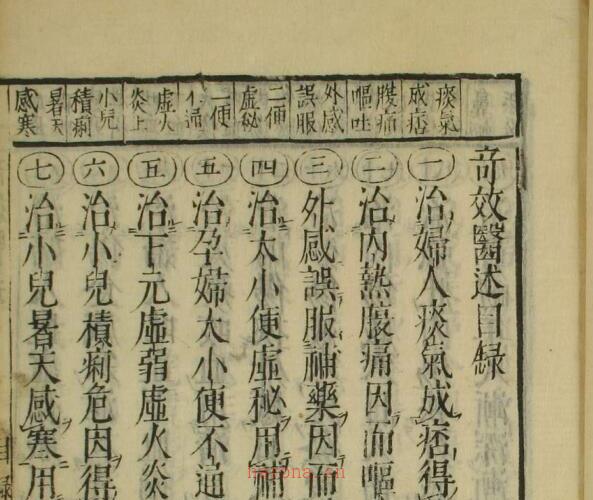 奇效醫述目録
痰氣
成痞
一 治婦人痰氣成痞得
腹痛
嘔吐
二 治内熱腹痛因而嘔
外感
誤服
三 外感誤服補藥因而
二便
虛秘
四 治大小便虛秘用補
二便
不通
五 治孕婦大小便不通
虛火
炎上
五 治下元虛弱虛火炎
小兒
積痢
六 治小兒積痢危因得
暑天
感寒
七 治小兒暑天感寒用
目録